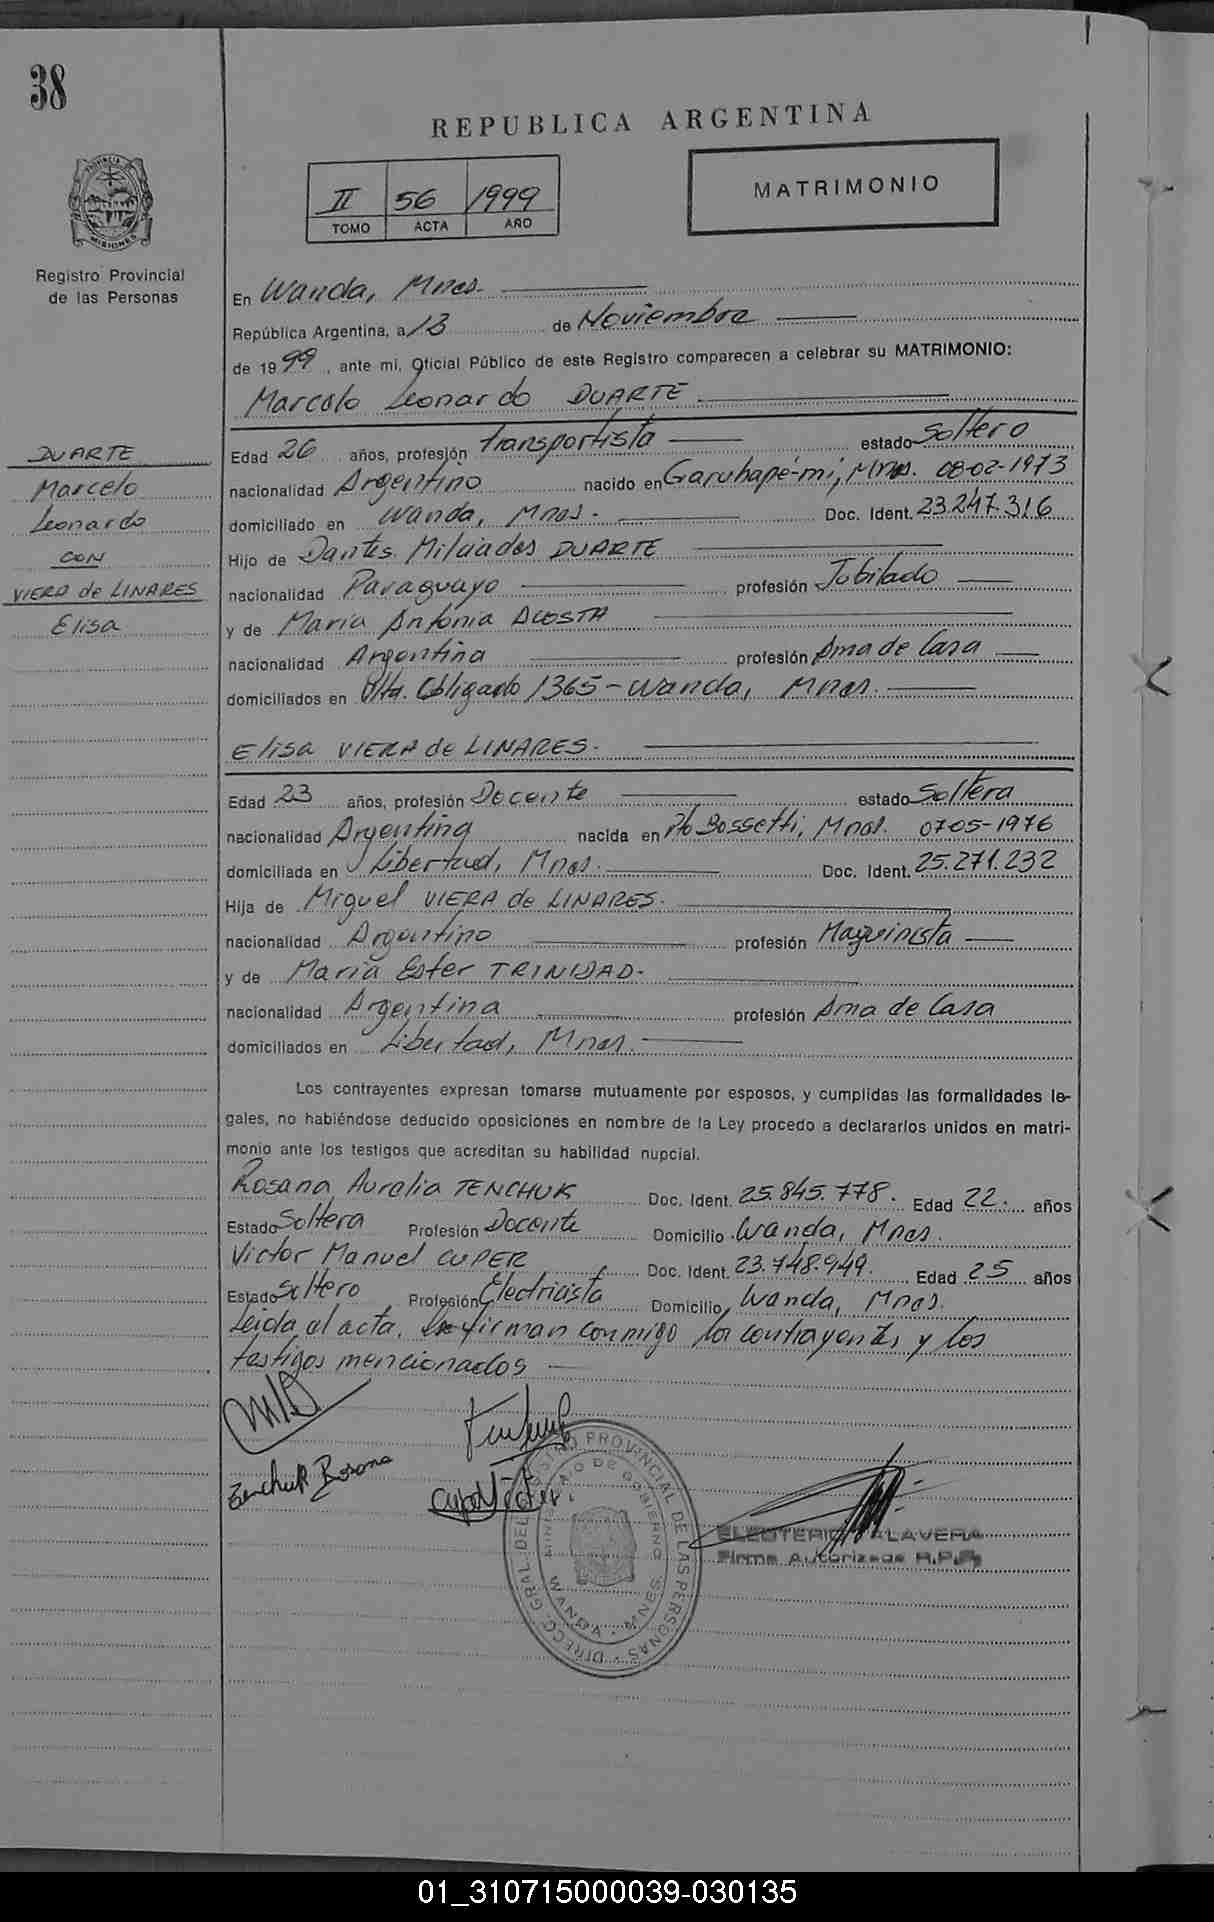 38
REPUBLICA ARGENTINA
MATRIMONIO
II 56 1999
TOMO ACTA AÑO
PROVINCIA
MISIONES
Registro Provincial
de las Personas
En Wanda, Mnes.
República Argentina, a 13 de Noviembre
de 1999, ante mi, Oficial Público de este Registro comparecen a celebrar su MATRIMONIO:
Marcelo Leonardo DUARTE
DUARTE
Marcelo
Leonardo
CON
VIERA de LINARES
Elisa
Edad 26 años, profesión transportista estado Soltero
nacionalidad Argentino nacido en Garuhapé-mi, Mnes. 08-02-1973
domiciliado en Wanda, Mnes. Doc. Ident. 23.247.316
Hijo de Dantes Milciades DUARTE
nacionalidad Paraguayo profesión Jubilado
y de María Antonia ACOSTA
nacionalidad Argentina profesión Ama de Casa
domiciliados en Vlta. Obligado 1365-Wanda, Mnes.
Elisa VIERA de LINARES.
Edad 23 años, profesión Docente estado Soltera
nacionalidad Argentina nacida en Pto Bossetti, Mnes. 07-05-1976
domiciliada en Libertad, Mnes. Doc. Ident. 25.271.232
Hija de Miguel VIERA de LINARES.
nacionalidad Argentino profesión Maquinista
y de María Ester TRINIDAD.
nacionalidad Argentina profesión Ama de Casa
domiciliados en Libertad, Mnes.
Los contrayentes expresan tomarse mutuamente por esposos, y cumplidas las formalidades le-
gales, no habiéndose deducido oposiciones en nombre de la Ley procedo a declararlos unidos en matri-
monio ante los testigos que acreditan su habilidad nupcial.
Rosana Aurelia TENCHUK Doc. Ident. 25.845.778. Edad 22. años
Estado Soltera Profesión Docente Domicilio Wanda, Mnes.
Victor Manuel CUPER Doc. Ident. 23.748.949. Edad 25 años
Estado Soltero Profesión Electricista Domicilio Wanda, Mnes.
Leida el acta, firman conmigo los contrayentes y los
testigos mencionados
Tenchuk Rosana
DIRECC. GRAL. DEL REGISTRO PROVINCIAL DE LAS PERSONAS
MINISTERIO DE GOBIERNO
WANDA - MNES.
ELEUTERIO TALAVERA
Firma Autorizada R.P.P.
01_310715000039-030135